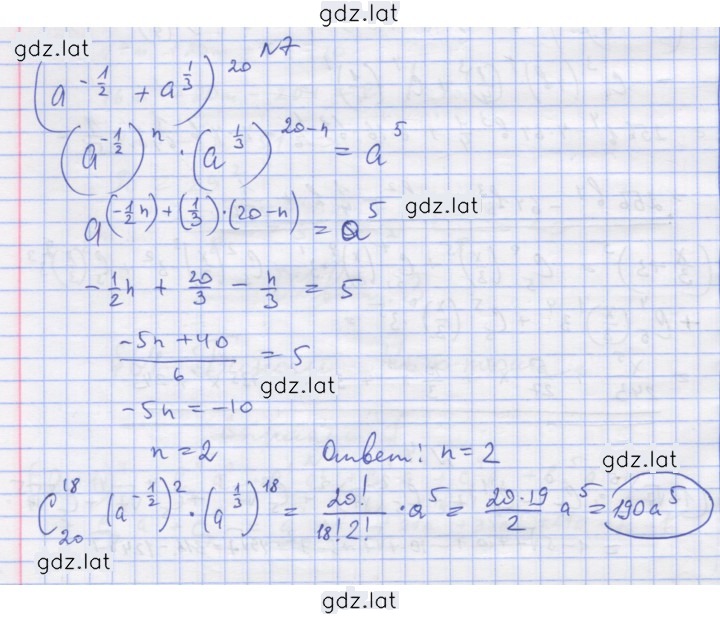 gdz.lat
gdz.lat
N7
(a^{-\frac{1}{2}} + a^{\frac{1}{3}})^{20}
(a^{-\frac{1}{2}})^{n} \cdot (a^{\frac{1}{3}})^{20-n} = a^{5}
a^{(-\frac{1}{2}n)+(\frac{1}{3})\cdot(20-n)} = a^{5}
gdz.lat
-\frac{1}{2}n + \frac{20}{3} - \frac{n}{3} = 5
\frac{-5n+40}{6} = 5
gdz.lat
-5n = -10
n = 2 Ответ: n = 2
gdz.lat
C_{20}^{18} (a^{-\frac{1}{2}})^{2} \cdot (a^{\frac{1}{3}})^{18} = \frac{20!}{18!2!} \cdot a^{5} = \frac{20 \cdot 19}{2} a^{5} = 190a^{5}
gdz.lat
gdz.lat